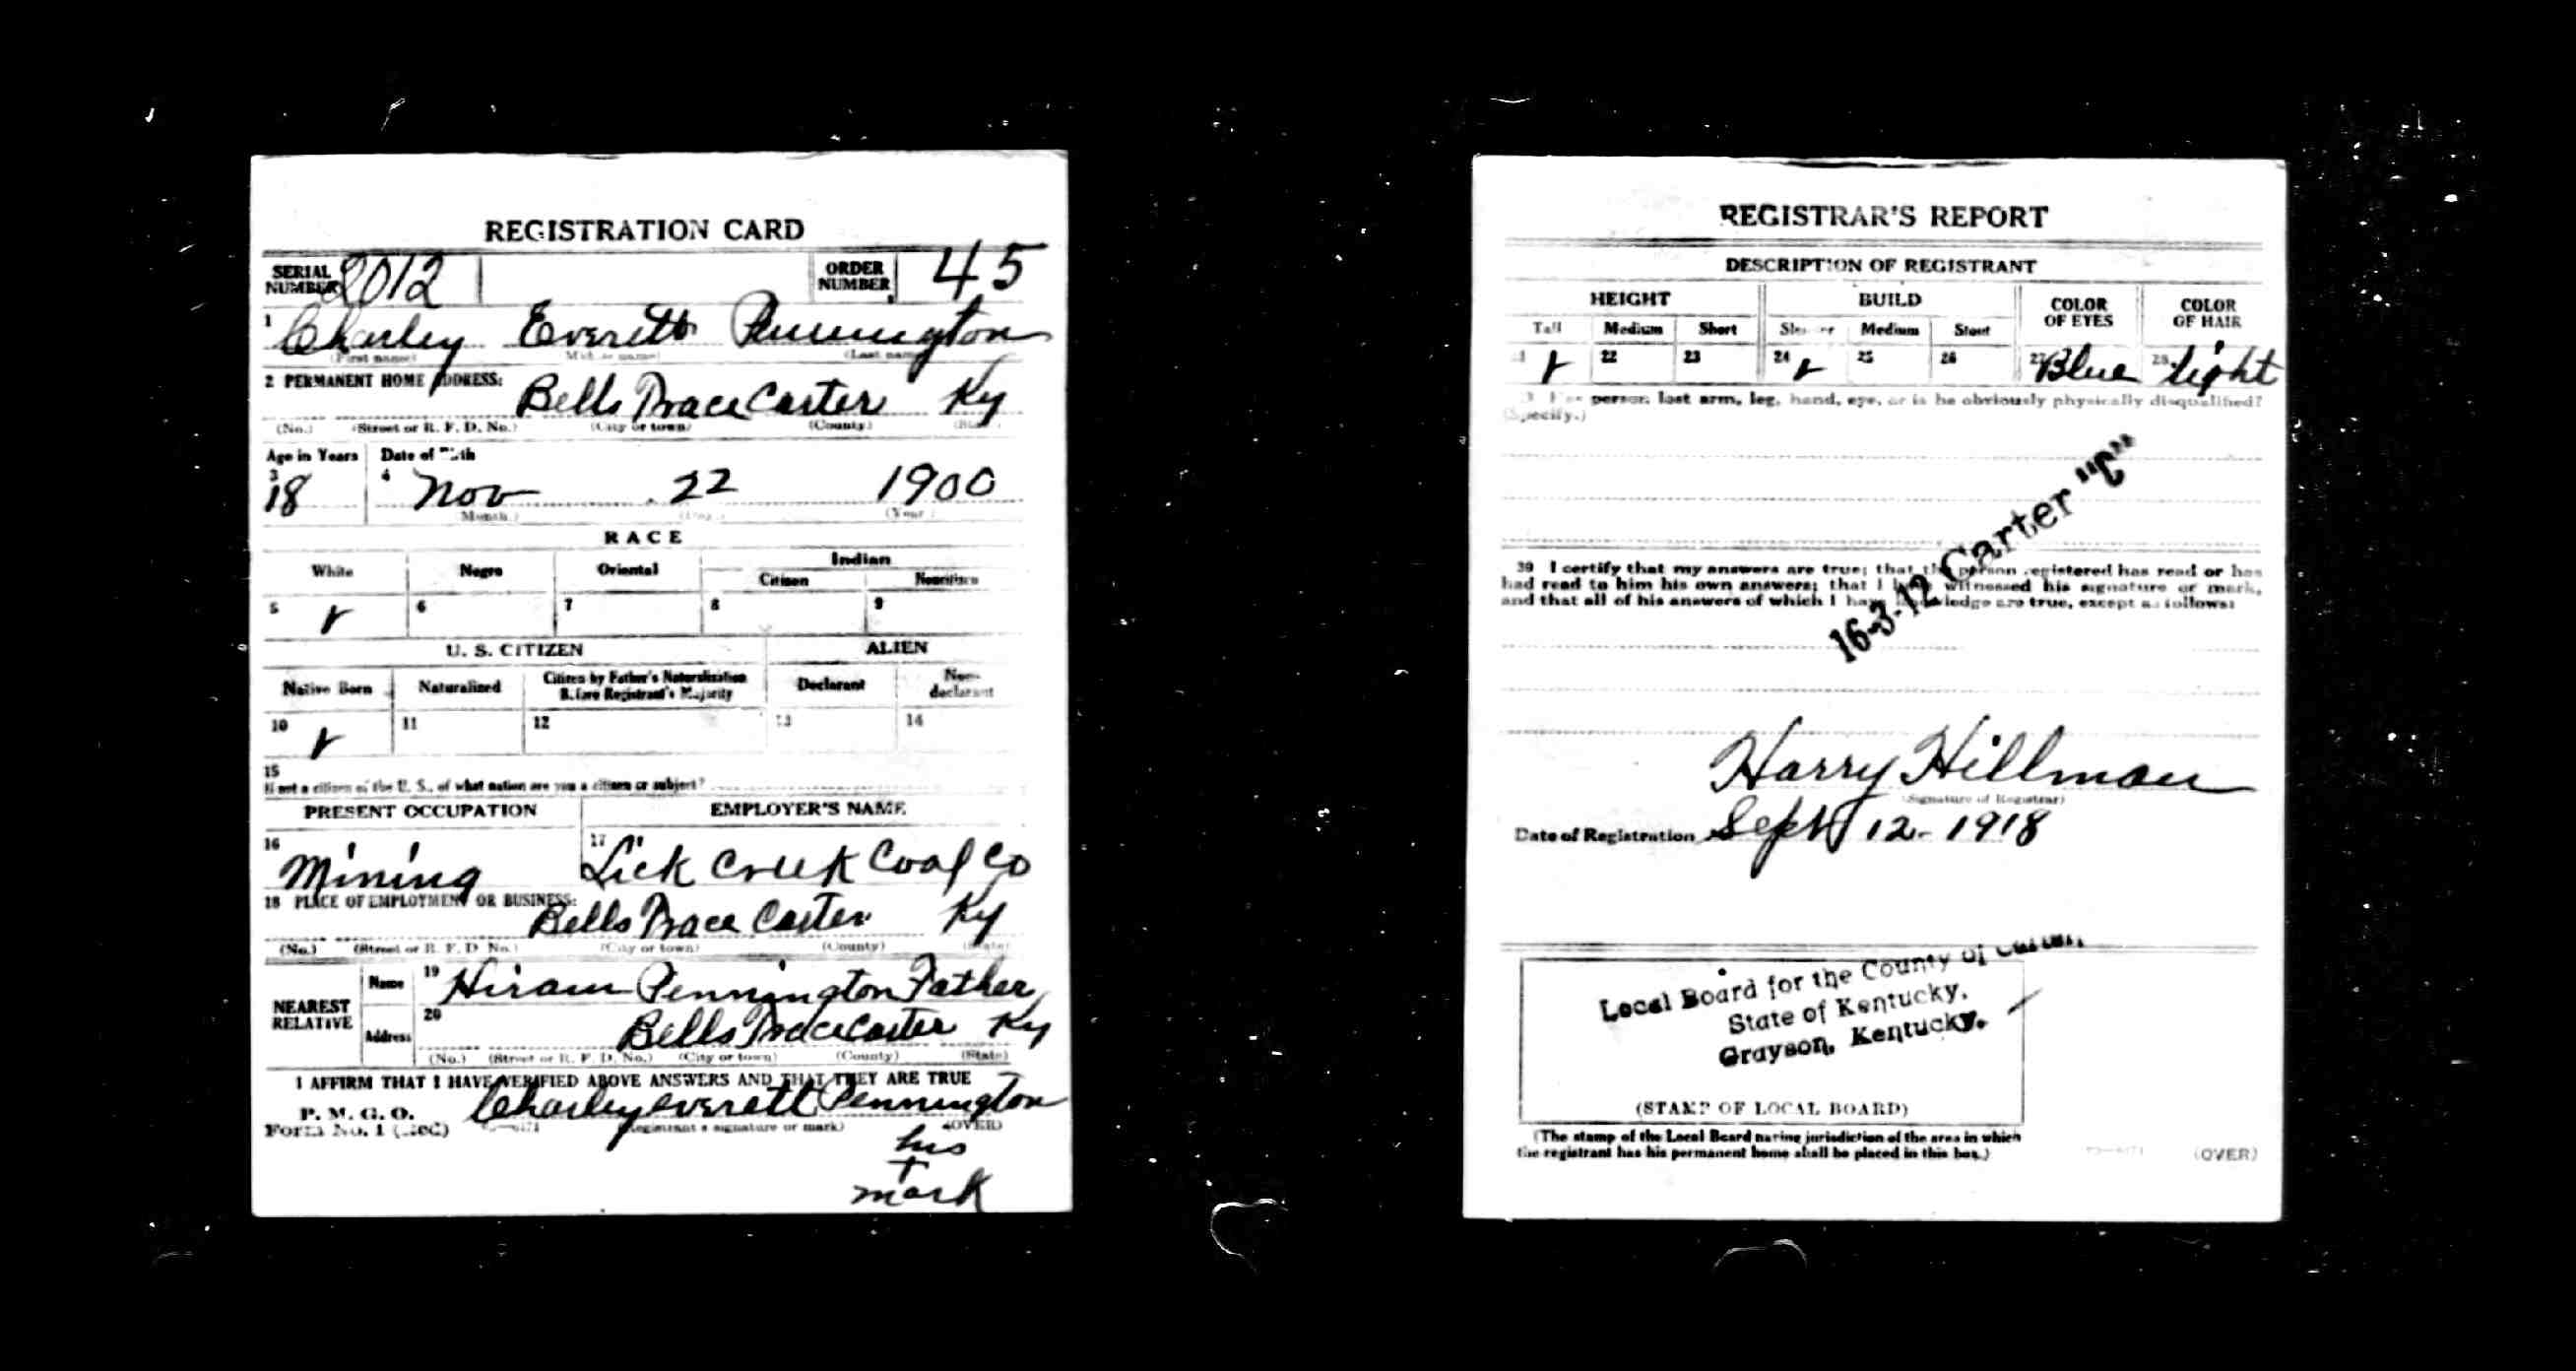 REGISTRATION CARD
SERIAL NUMBER 2012 ORDER NUMBER 45
1 Charley Everett Pennington
(First name) (Middle name) (Last name)
2 PERMANENT HOME ADDRESS:
Bells Trace Carter Ky
(No.) (Street or R. F. D. No.) (City or town) (County) (State)
Age in Years Date of Birth
3 18 4 Nov 22 1900
(Month.) (Day.) (Year.)
RACE
White Negro Oriental Indian
Citizen Noncitizen
5 6 7 8 9
U. S. CITIZEN ALIEN
Native Born Naturalized Citizen by Father's Naturalization Before Registrant's Majority Declarant Non-declarant
10 11 12 13 14
15
If not a citizen of the U. S., of what nation are you a citizen or subject?
PRESENT OCCUPATION EMPLOYER'S NAME
16 Mining 17 Lick Creek Coal Co
18 PLACE OF EMPLOYMENT OR BUSINESS:
Bells Trace Carter Ky
(No.) (Street or R. F. D. No.) (City or town) (County) (State)
NEAREST RELATIVE
Name 19 Hiram Pennington Father
Address 20 Bells Trace Carter Ky
(No.) (Street or R. F. D. No.) (City or town) (County) (State)
I AFFIRM THAT I HAVE VERIFIED ABOVE ANSWERS AND THAT THEY ARE TRUE
P. M. G. O.
Form No. 1 (Red) Charley Everett Pennington
(Registrant's signature or mark) (OVER)
his
+
mark
REGISTRAR'S REPORT
DESCRIPTION OF REGISTRANT
HEIGHT BUILD COLOR OF EYES COLOR OF HAIR
Tall Medium Short Slender Medium Stout
21 22 23 24 25 26 27 Blue 28 light
29 Has person lost arm, leg, hand, eye, or is he obviously physically disqualified?
(Specify.)
16-3-12 Carter "C"
30 I certify that my answers are true; that the person registered has read or has
had read to him his own answers; that I have witnessed his signature or mark,
and that all of his answers of which I have knowledge are true, except as follows:
Harry Hillman
(Signature of Registrar)
Date of Registration Sept 12-1918
Local Board for the County of Carter,
State of Kentucky,
Grayson, Kentucky.
(STAMP OF LOCAL BOARD)
(The stamp of the Local Board having jurisdiction of the area in which
the registrant has his permanent home shall be placed in this box.)
(OVER)